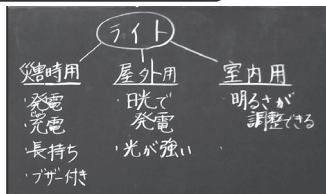 ライト
災害時用
・発電
充電
・長持ち
・ブザー付き
屋外用
・日光で
発電
・光が強い
室内用
・明るさが
調整できる
・